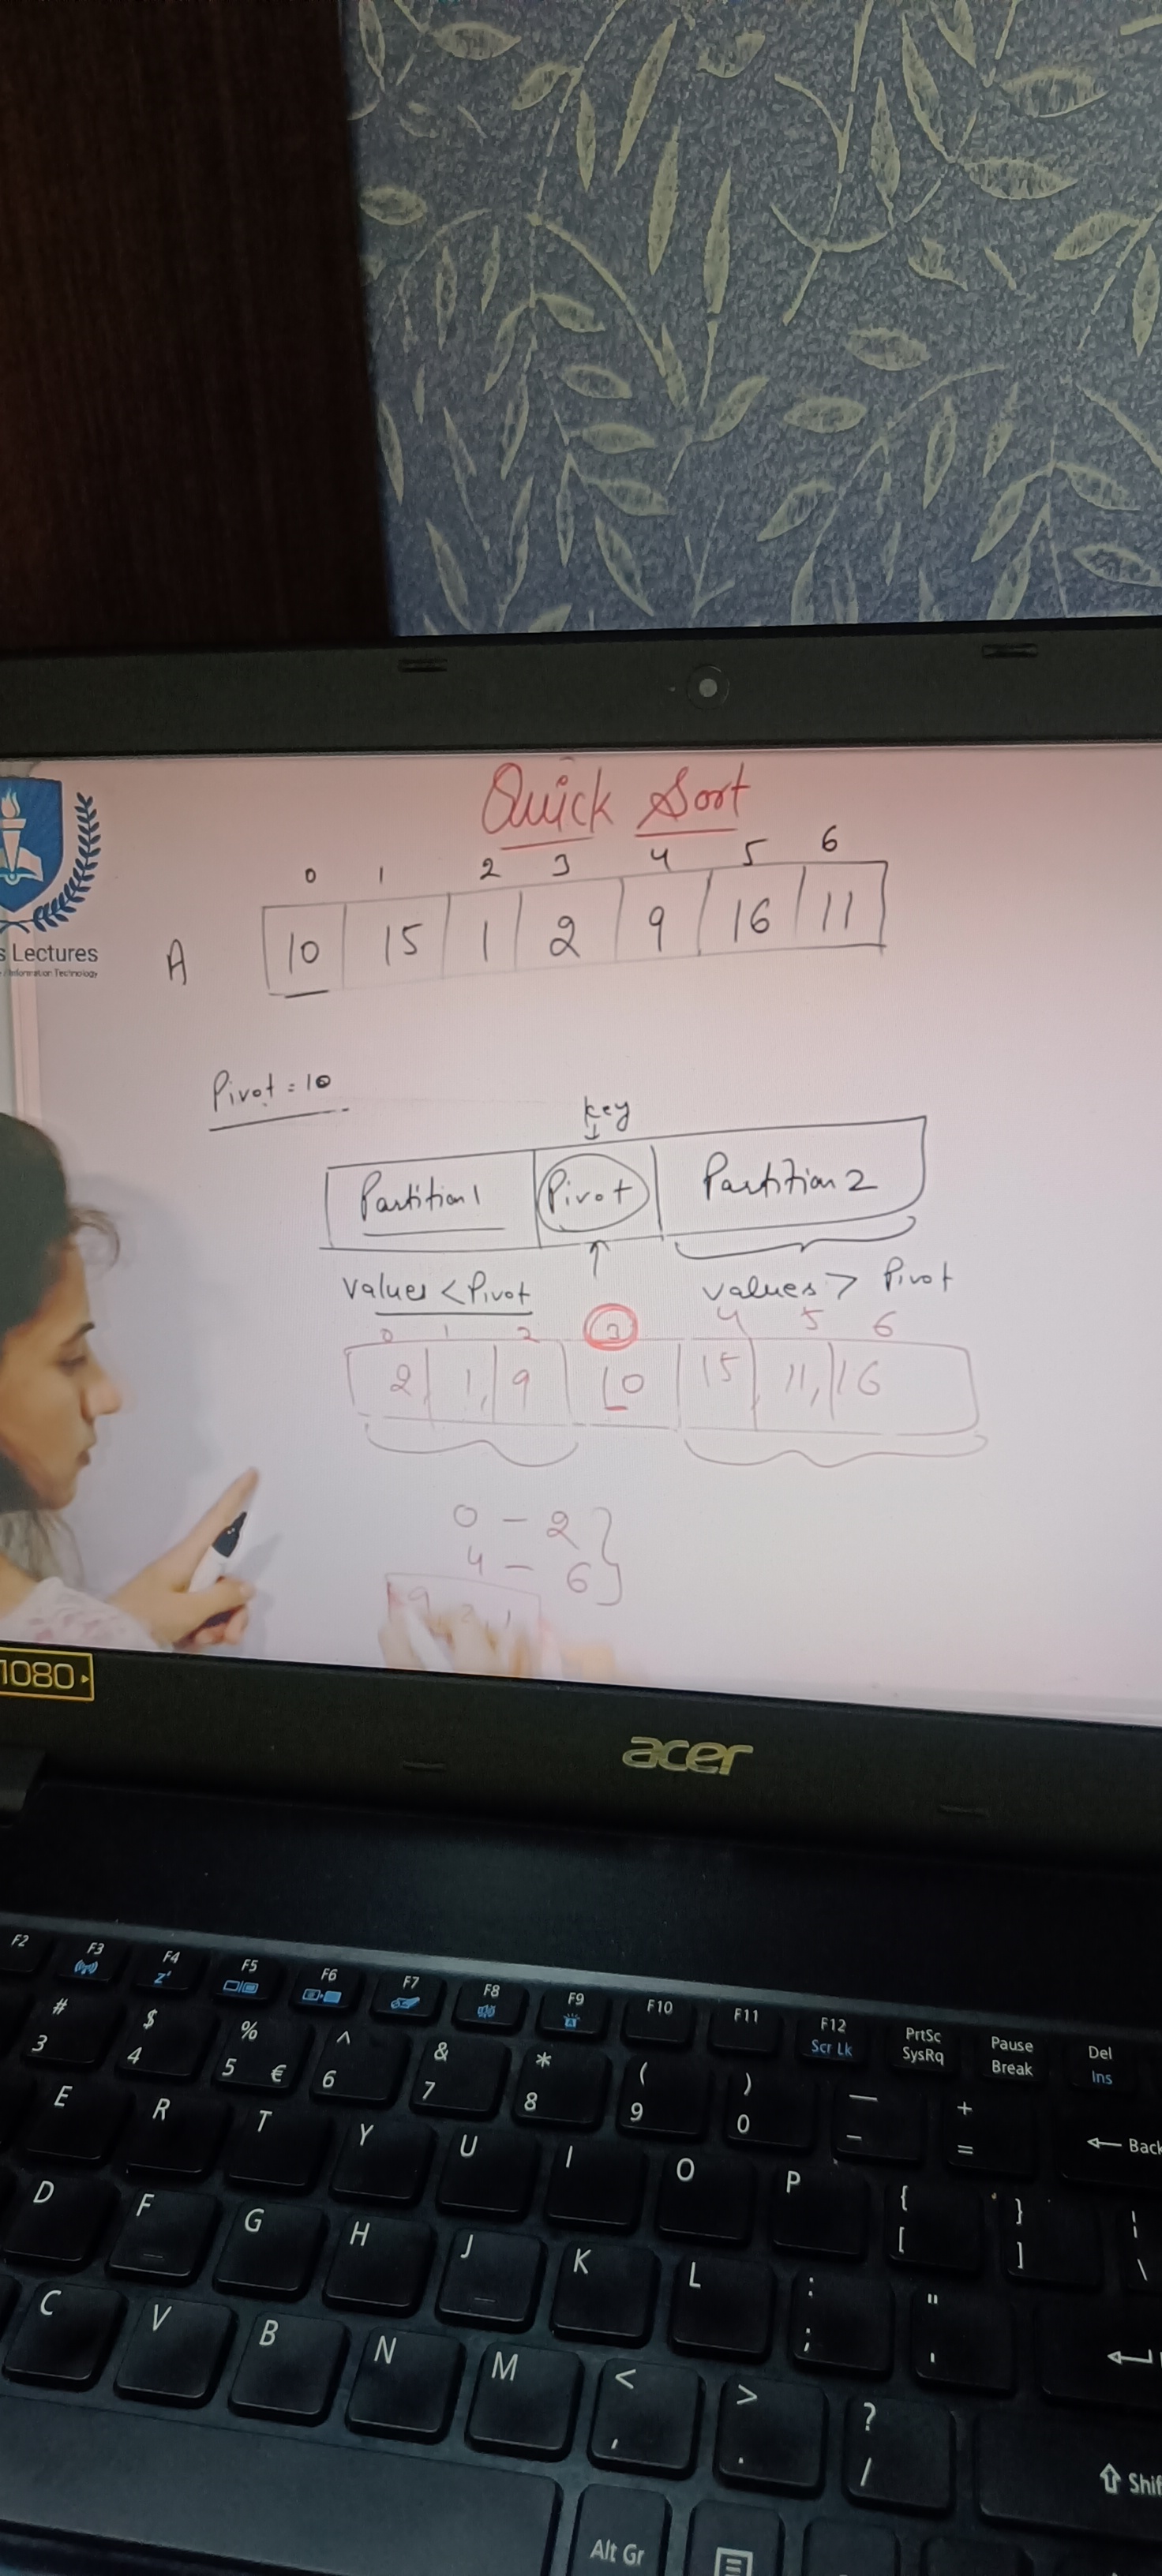 Quick Sort
0 1 2 3 4 5 6
A 10 15 1 2 9 16 11
s Lectures
/ Information Technology
Pivot = 10
key
Partition 1 Pivot Partition 2
Values < Pivot values > Pivot
0 1 2 3 4 5 6
2, 1, 9 10 15, 11, 16
0 - 2 }
4 - 6
9 2 1
1080
acer
F2 F3 F4 F5 F6 F7 F8 F9 F10 F11 F12 Scr Lk PrtSc SysRq Pause Break Del Ins
# 3 $ 4 % 5 € ^ 6 & 7 * 8 ( 9 ) 0 _ - + = Back
E R T Y U I O P { [ } ] | \
D F G H J K L : ; " '
C V B N M < , > . ? / Shif
Alt Gr